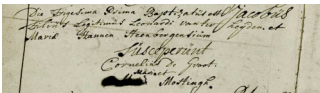 Die Trigesima Prima Baptizatus est Jacobus
filius Legitimus Leonardi van ter Heyden et
Maria Hannen Steenbergensium
Susceperunt
Cornelius de Groot
Mostingh.